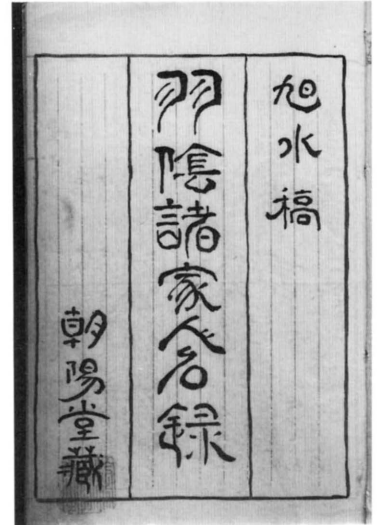 旭水稿
羽陰諸家人名録
朝陽堂蔵